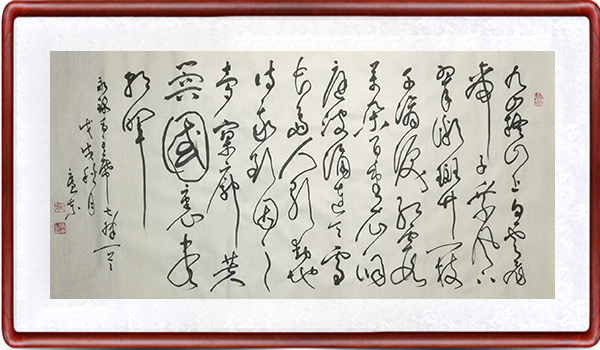 九嶷山上白云飞
帝子乘风下
翠微斑竹一枝
千滴泪红霞
万朵百重衣洞
庭波涌连天雪
长岛人歌动地
诗我欲因之
梦寥廓芙
蓉国里尽
朝晖
毛主席七律一首
戊戌秋月